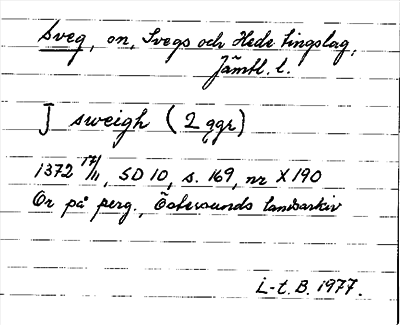 Sveg, on, Svegs och Hede tingslag,
Jämtl. l.
J sweigh (2 ggr)
1372 17/11, SD 10, s. 169, nr X 190
Or på perg., Östersunds landsarkiv
L-t. B. 1977.